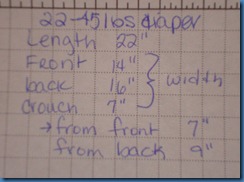 22-45 lbs diaper
Length 22"
Front 14"
back 16" width
crouch 7"
→ from front 7"
from back 9"